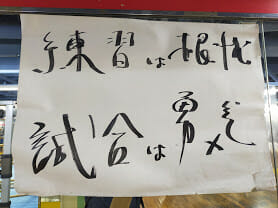 練習は根性
試合は勇気